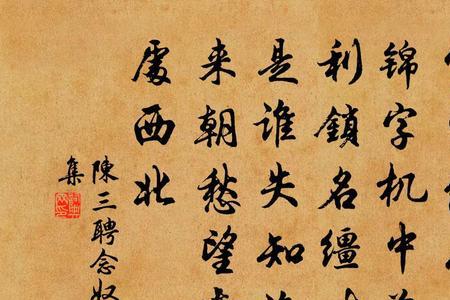 錦字机中
利鎖名繮
是誰失知
来朝愁望
處西北
陳三聘念奴
集